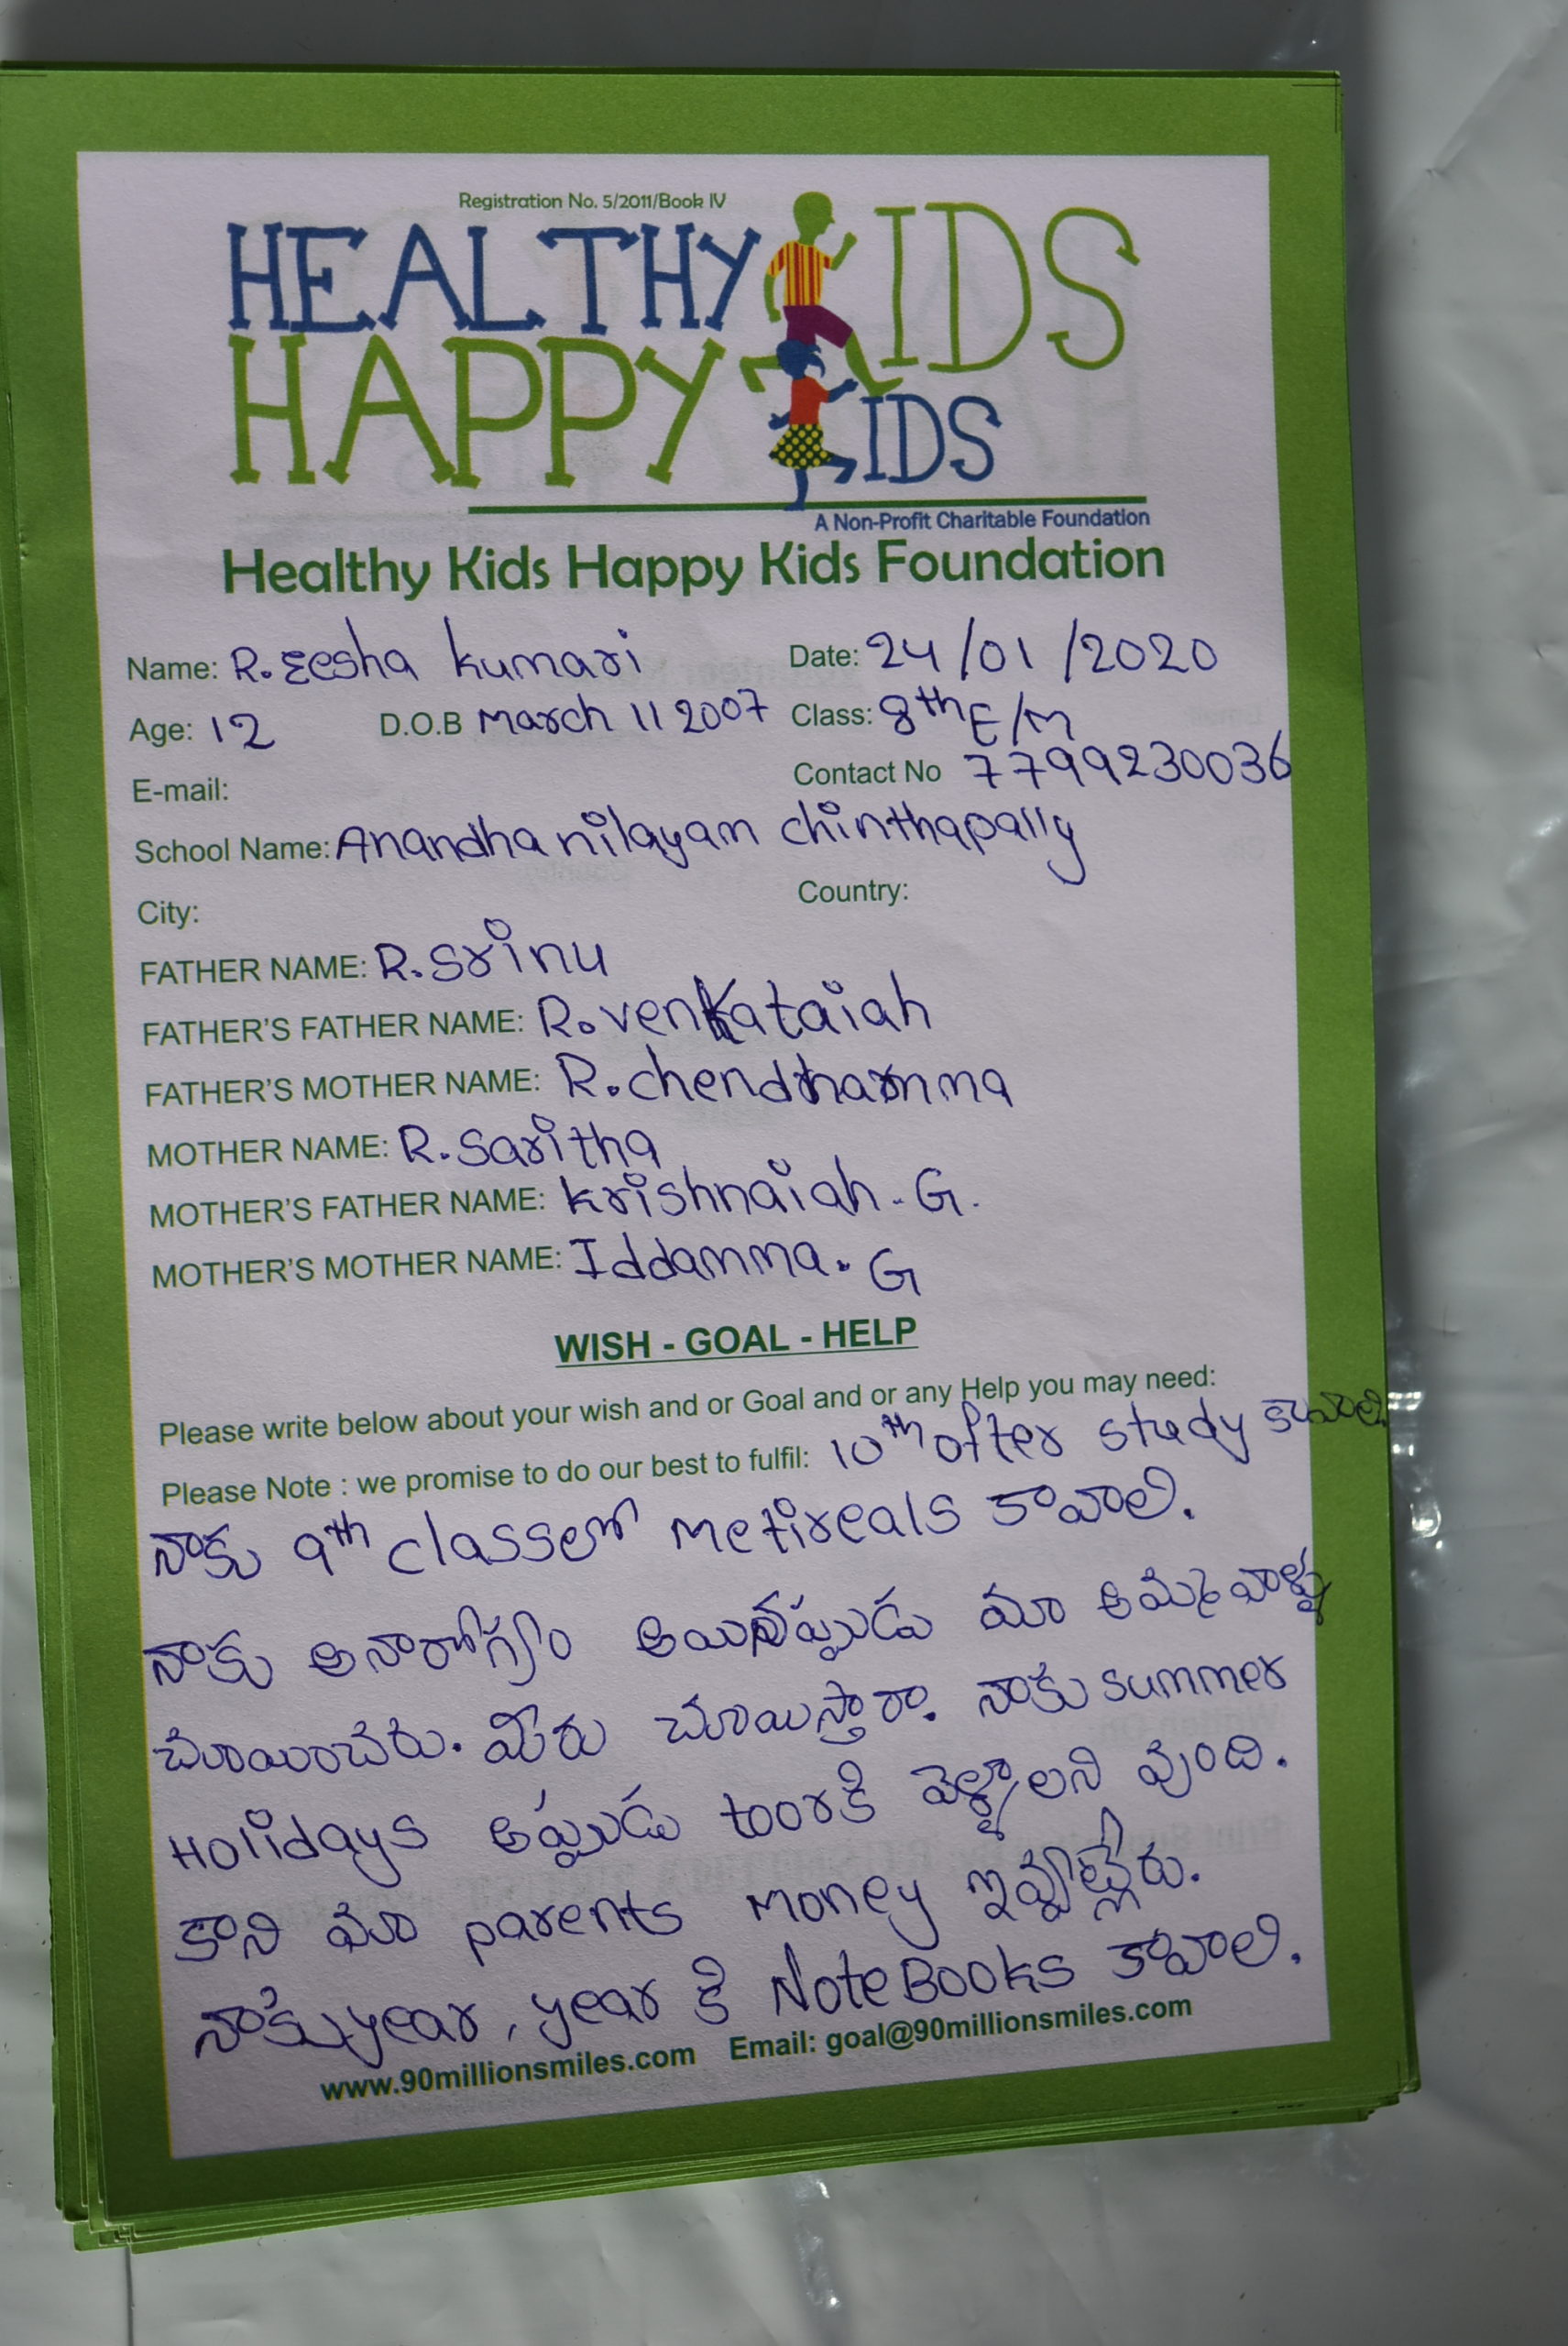 Registration No. 5/2011/Book IV
HEALTHY KIDS
HAPPY KIDS
A Non-Profit Charitable Foundation
Healthy Kids Happy Kids Foundation
Name: R. Eesha kumari Date: 24/01/2020
Age: 12 D.O.B March 11 2007 Class: 8th E/M
E-mail: Contact No 7799230036
School Name: Anandha nilayam chinthapally
City: Country:
FATHER NAME: R. Srinu
FATHER'S FATHER NAME: R. venkataiah
FATHER'S MOTHER NAME: R. chendhamma
MOTHER NAME: R. Saritha
MOTHER'S FATHER NAME: krishnaiah. G.
MOTHER'S MOTHER NAME: Iddamma. G
WISH - GOAL - HELP
Please write below about your wish and or Goal and or any Help you may need:
Please Note : we promise to do our best to fulfil: 10th ofter study కావాలి.
నాకు 9th classలో metireals కావాలి.
నాకు అనారోగ్యం అయినప్పుడు మా అమ్మవాళ్ళు
చూయించరు. మీరు చూయిస్తారా. నాకు summer
Holidays అప్పుడు toorకి వెళ్ళాలని వుంది.
కాని మా parents money ఇవ్వట్లేరు.
నాకు year, year కి NoteBooks కావాలి.
www.90millionsmiles.com Email: goal@90millionsmiles.com